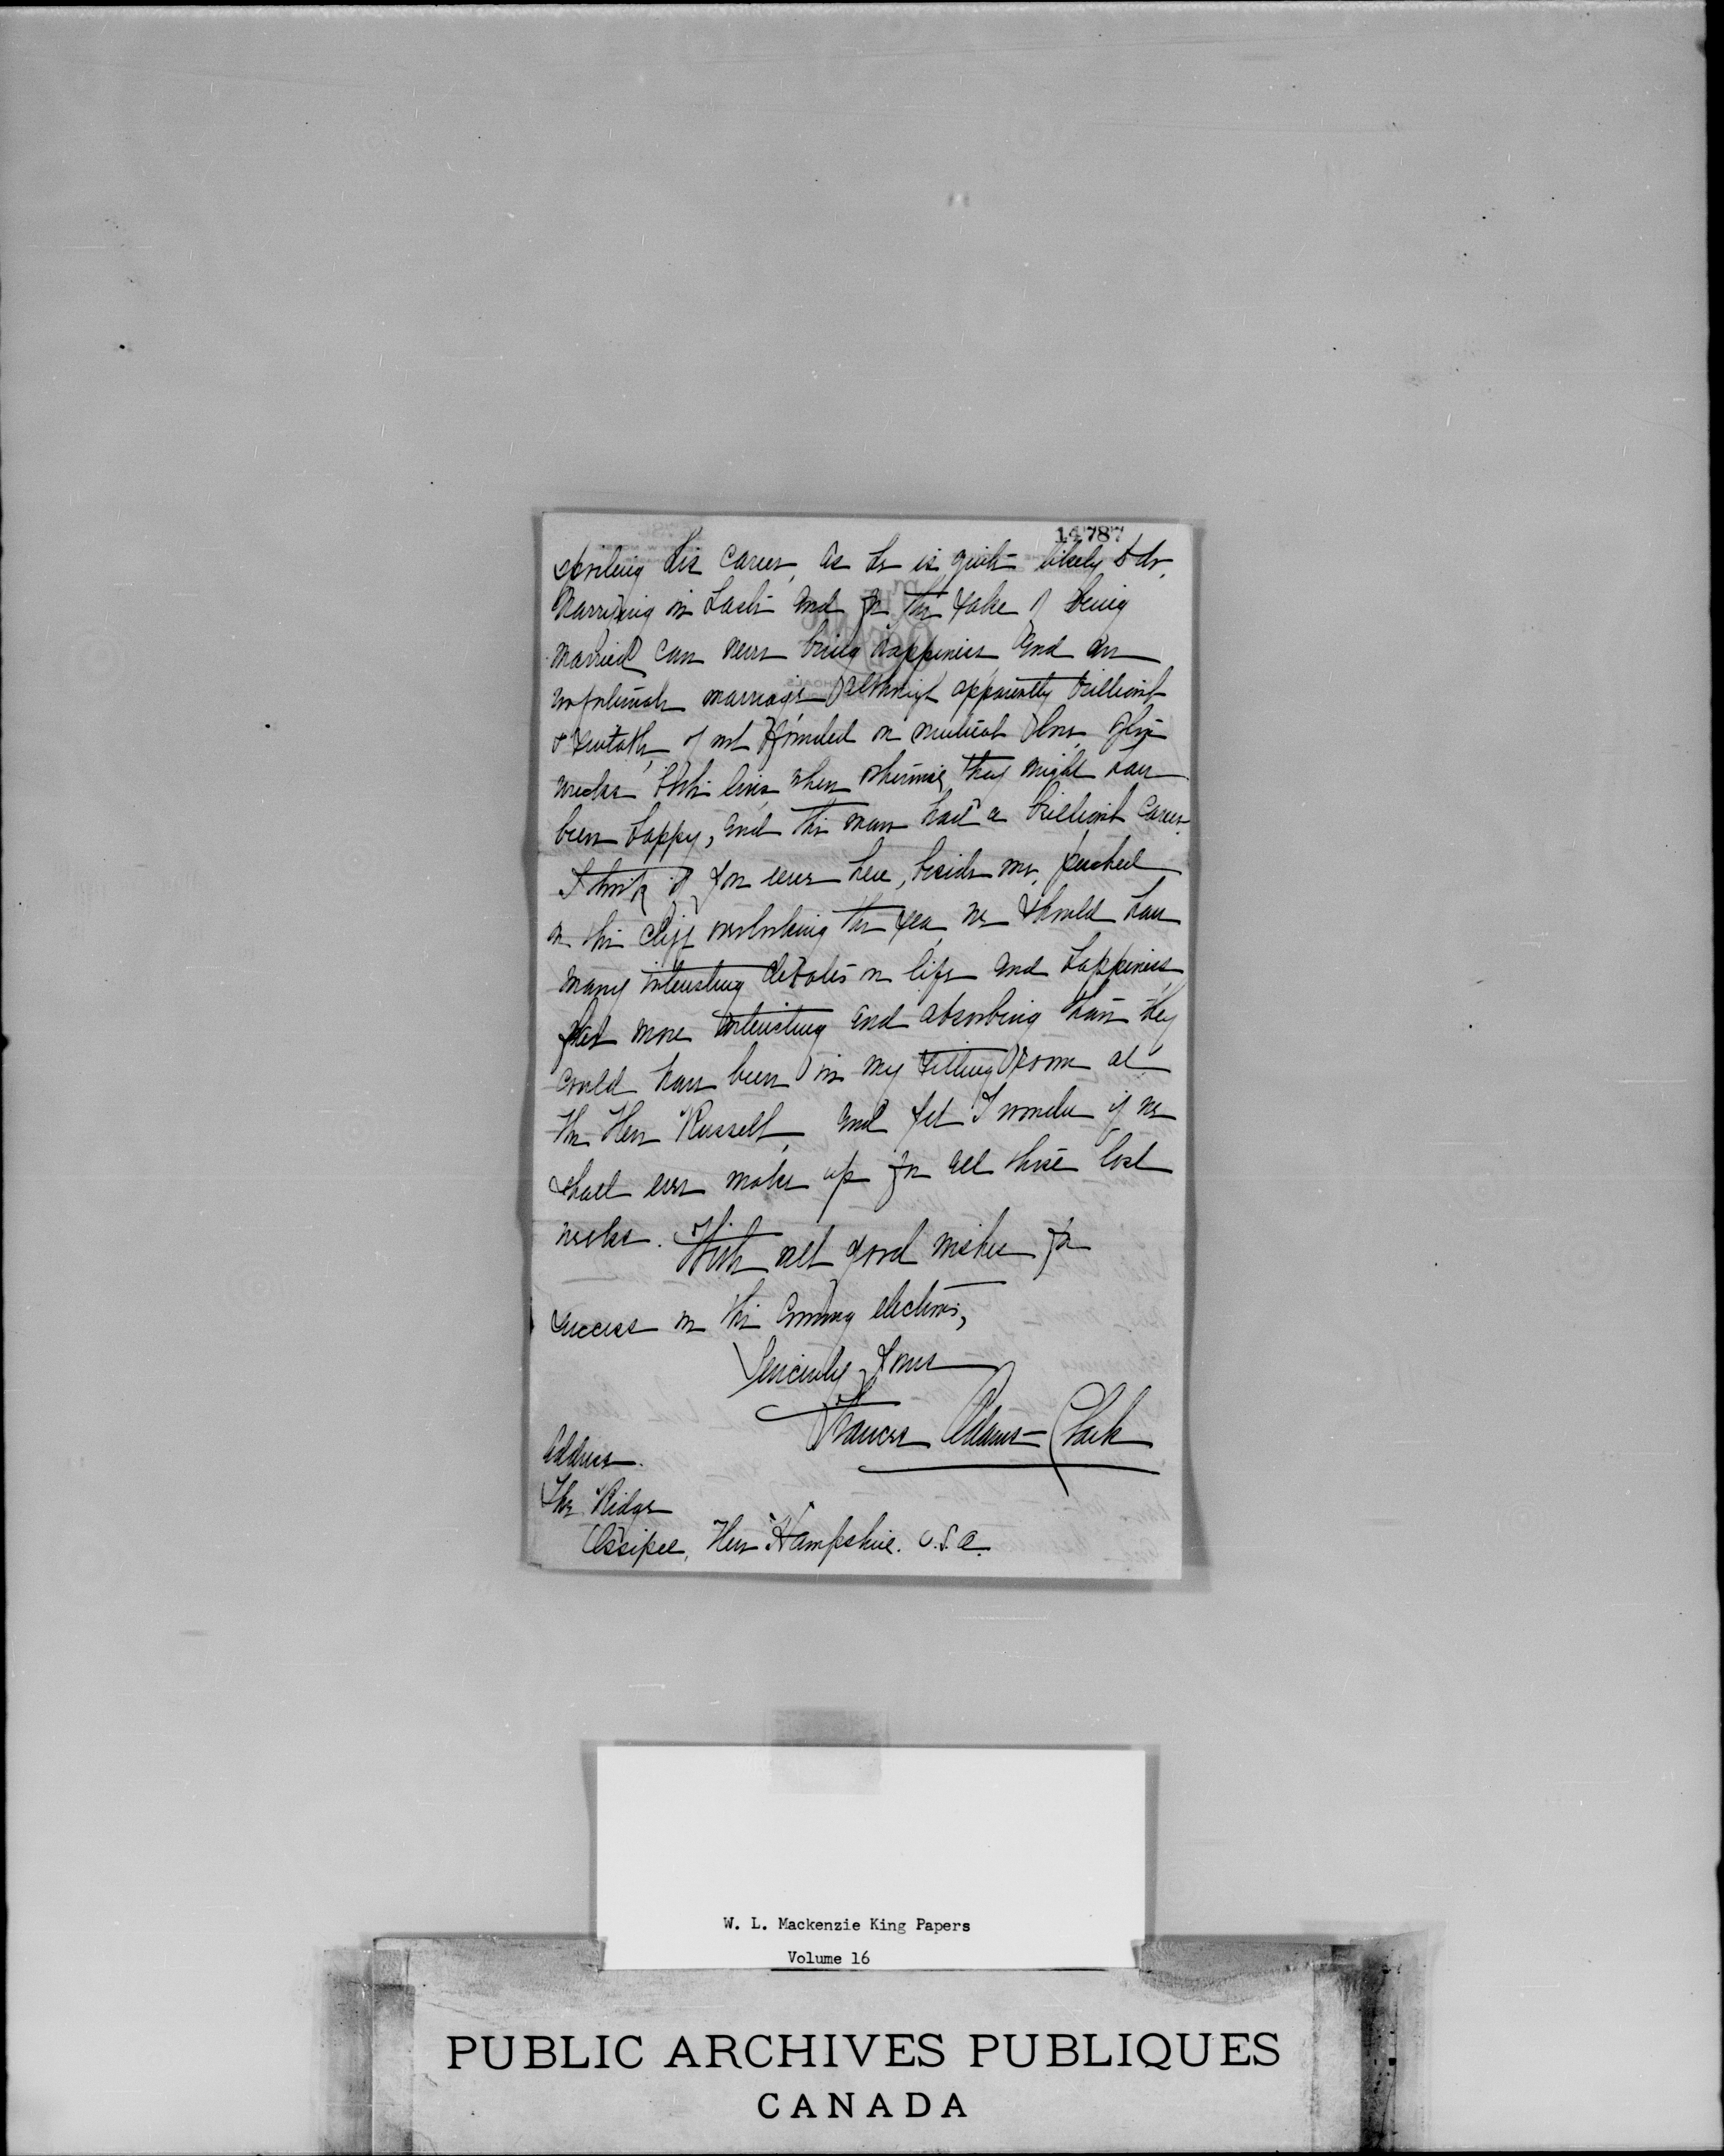 14787
spoiling his career, as he is quite likely to do.
Marrying in haste and for the sake of being
married can never bring happiness and an
unfortunate marriage although apparently brilliant
& suitable, if not founded on mutual love, often
wrecks both lives when otherwise they might have
been happy, and the man had a brilliant career.
I think if you were here, beside me, perched
on the cliff overlooking the sea, we should have
many interesting debates on life and happiness
far more interesting and absorbing than they
could have been in my sitting room at
the New Russell, and yet I wonder if we
shall ever make up for all those lost
weeks. With all good wishes for
success in the coming elections,
Sincerely Yours
Frances Adams-Clark
Address.
The Ridge
Ossipee, New Hampshire. U.S.A.
W. L. Mackenzie King Papers
Volume 16
PUBLIC ARCHIVES PUBLIQUES
CANADA